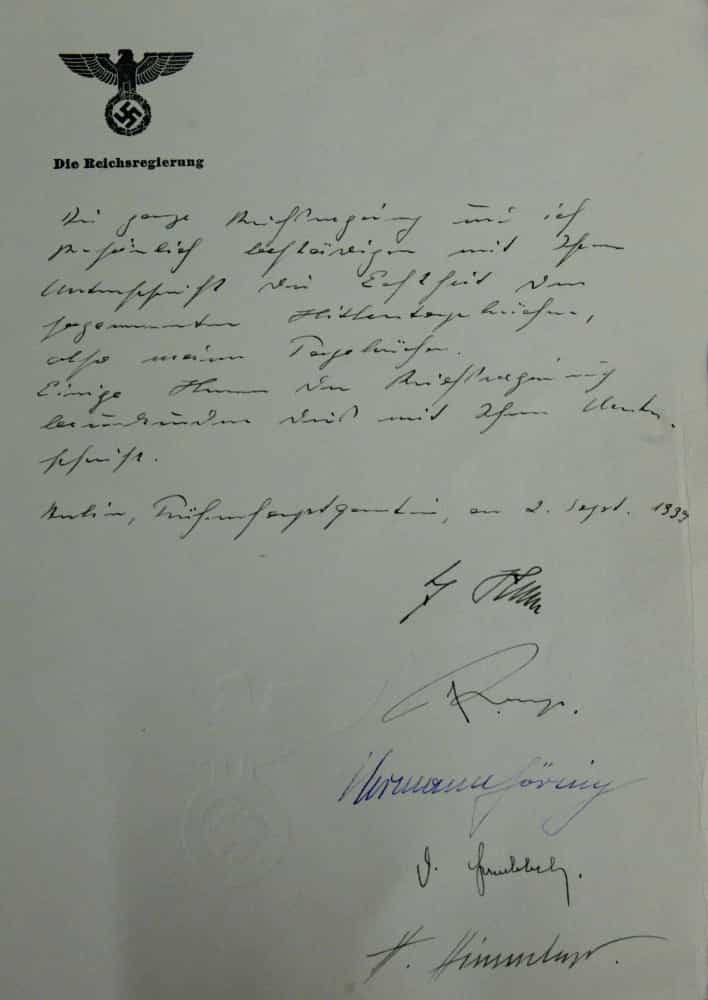 Die Reichsregierung
Die ganze Reichsregierung und ich
persönlich bestätigen mit Ihrer
Unterschrift die Echtheit der
sogenannten Hitlertagebücher,
also meiner Tagebücher.
Einige Herren der Reichsregierung
beurkunden dies mit Ihrer Unter-
schrift.
Berlin, Führerhauptquartier, am 2. Sept. 1939
Hermann Göring
H. Himmler.